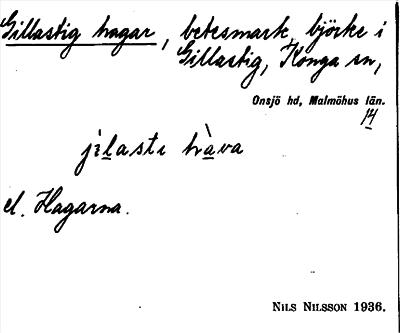 Gillastig hagar, betesmark, björke i
Gillastig, Konga sn,
Onsjö hd, Malmöhus län.
14
jìlasti hàva
el. Hagarna.
NILS NILSSON 1936.